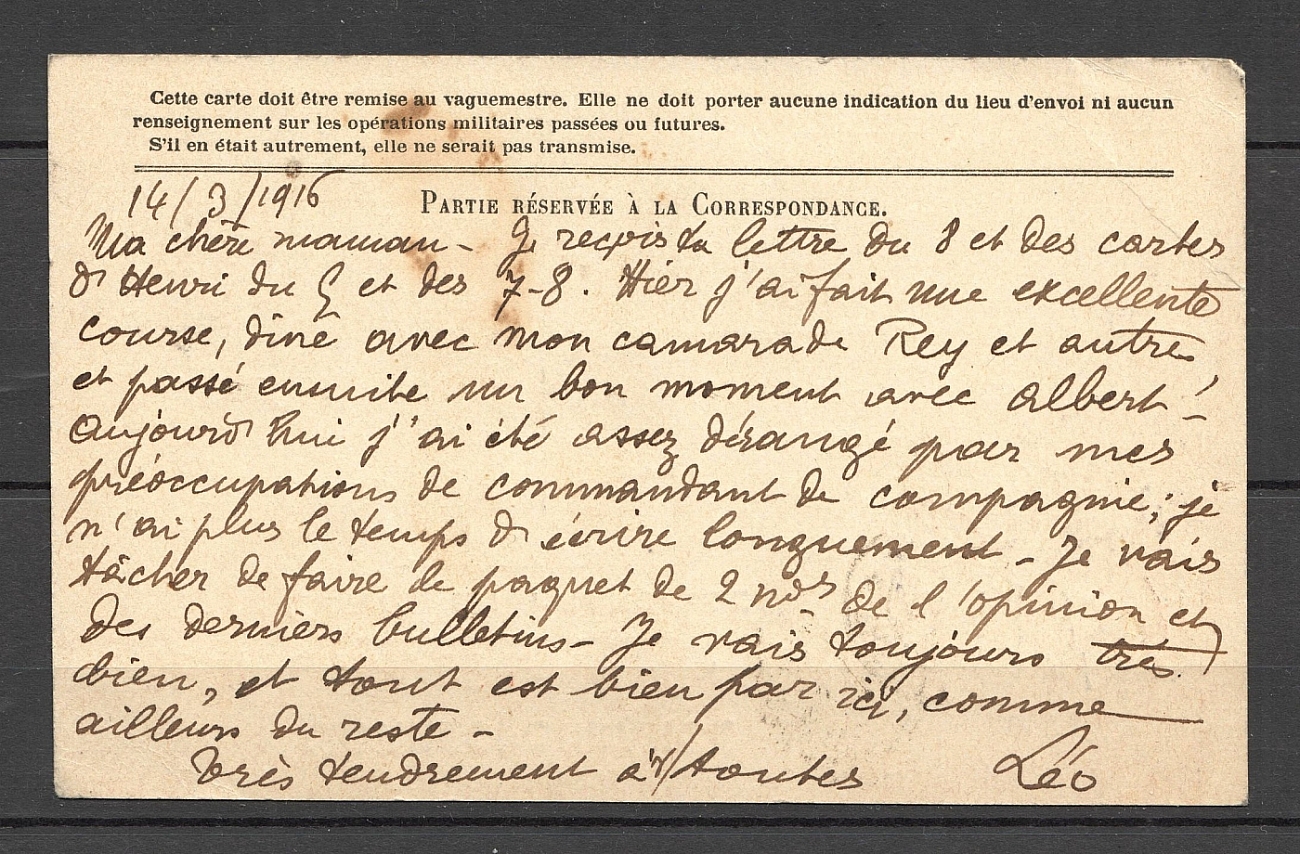 Cette carte doit être remise au vaguemestre. Elle ne doit porter aucune indication du lieu d'envoi ni aucun
renseignement sur les opérations militaires passées ou futures.
S'il en était autrement, elle ne serait pas transmise.
14/3/1916
PARTIE RÉSERVÉE À LA CORRESPONDANCE.
Ma chère maman - Je reçois ta lettre du 8 et des cartes
d'Henri du et des 7-8. Hier j'ai fait une excellente
course, diné avec mon camarade Rey et autres,
et passé ensuite un bon moment avec Albert! -
Aujourd'hui j'ai été assez dérangé par mes
préoccupations de commandant de compagnie; je
n'ai plus le temps d'écrire longuement - Je vais
tâcher de faire le paquet de 2 nos de l'opinion et
des derniers bulletins - Je vais toujours très
bien, et tout est bien par ici, comme
ailleurs du reste -
Très tendrement à toutes Léo